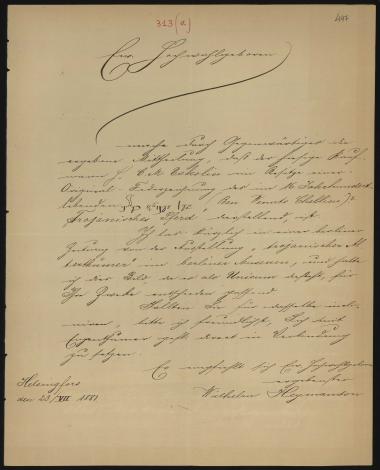 313 (a)
447
Ew. Hochwohlgeboren
mache durch Gegenwärtiges die
ergebene Mittheilung, daß der hiesige Kauf-
mann H. Eskolin im Besitze einer
Original-Federzeichnung des im 16. Jahrhundert
lebenden
Trojanisches Pferd, darstellend, ist.
Ich las kürzlich in einer berliner
Zeitung von der Ausstellung "trojanischer Al-
terthümer" im berliner Museum, und halte
ich das Bild, da es als Unicum dasteht, für
Ihre Zwecke entschieden passend.
Sollten Sie für dasselbe inkli-
niren, bitte ich freundlichst, Sich mit
Eigenthümer gefl. direct in Verbindung
zu setzen.
Es empfiehlt sich Ew. Hochwohlgeboren
ergebenster
Wilhelm Heymanson
Helsingfors
den 23/VII 1881